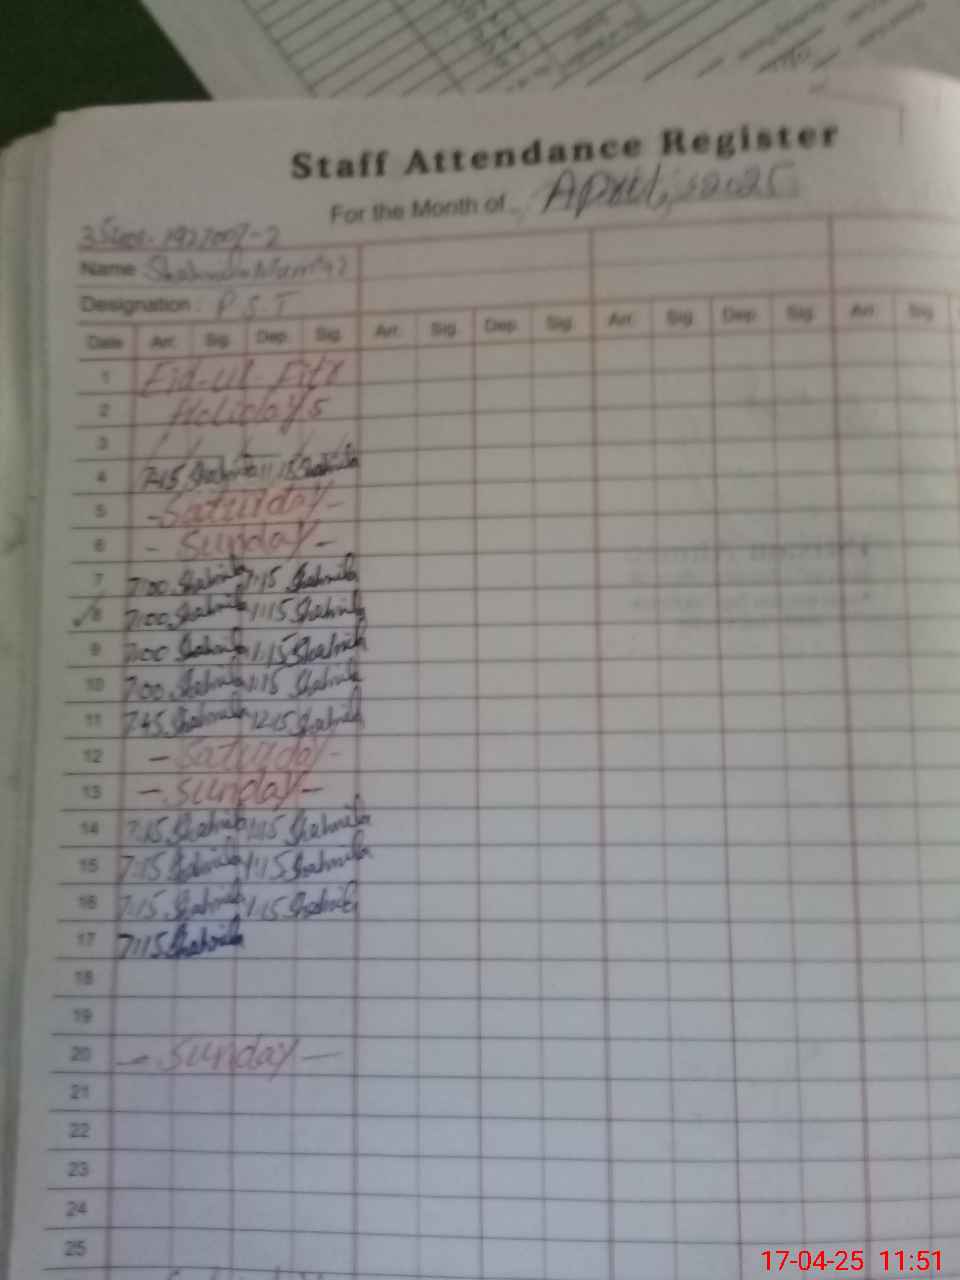 Staff Attendance Register
For the Month of April, 2025
Name Shahnila
Designation : P.S.T
Date Arr. Sig. Dep. Sig. Arr. Sig. Dep. Sig. Arr. Sig. Dep. Sig. Arr. Sig.
1 Eid-ul-Fitr
2 Holidays
3
4 7:15 Shahnila 11:15 Shahnila
5 -Saturday-
6 - Sunday -
7 7:00 Shahnila 1:15 Shahnila
8 7:00 Shahnila 1:15 Shahnila
9 7:00 Shahnila 1:15 Shahnila
10 7:00 Shahnila 1:15 Shahnila
11 7:45 Shahnila 12:15 Shahnila
12 - Saturday -
13 - Sunday -
14 7:15 Shahnila 1:15 Shahnila
15 7:15 Shahnila 1:15 Shahnila
16 7:15 Shahnila 1:15 Shahnila
17 7:15 Shahnila
18
19
20 - Sunday -
21
22
23
24
25
17-04-25 11:51